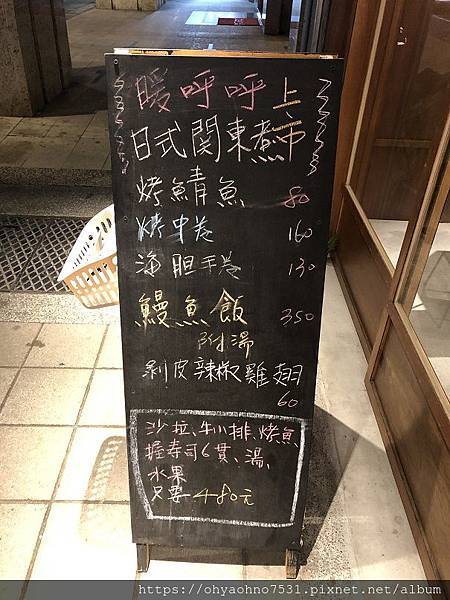 暖呼呼上市
日式關東煮
烤鯖魚 80
烤中卷 160
海胆手卷 130
鰻魚飯 350
附湯
剝皮辣椒雞翅
60
沙拉、牛小排、烤魚
握壽司6貫、湯、
水果
只要480元
https://ohyaohno7531.pixnet.net/album